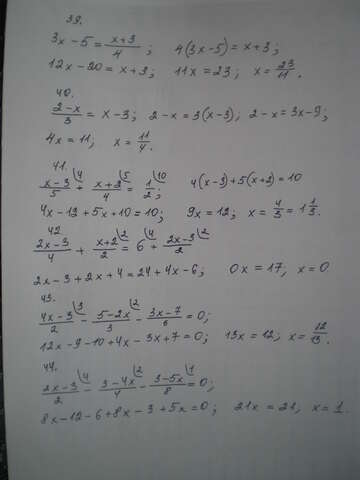 39.
3x-5 = x+3/4 ; 4(3x-5) = x+3 ;
12x-20 = x+3 ; 11x = 23 ; x = 23/11 .
40.
2-x/3 = x-3 ; 2-x = 3(x-3) ; 2-x = 3x-9 ;
4x = 11 ; x = 11/4 .
41.
x-3/5 \4 + x+2/4 \5 = 1/2 \10 ; 4(x-3)+5(x+2) = 10
4x-12+5x+10 = 10 ; 9x = 12 ; x = 4/3 = 1 1/3 .
42.
2x-3/4 + x+2/2 \2 = 6 \4 + 2x-3/2 \2
2x-3+2x+4 = 24+4x-6 ; 0x = 17 ; x = 0
43.
4x-3/2 \3 - 5-2x/3 \2 - 3x-7/6 = 0 ;
12x-9-10+4x-3x+7 = 0 ; 13x = 12 ; x = 12/13 .
44.
2x-3/2 \4 - 3-4x/4 \2 - 3-5x/8 \1 = 0 ;
8x-12-6+8x-3+5x = 0 ; 21x = 21 ; x = 1 .